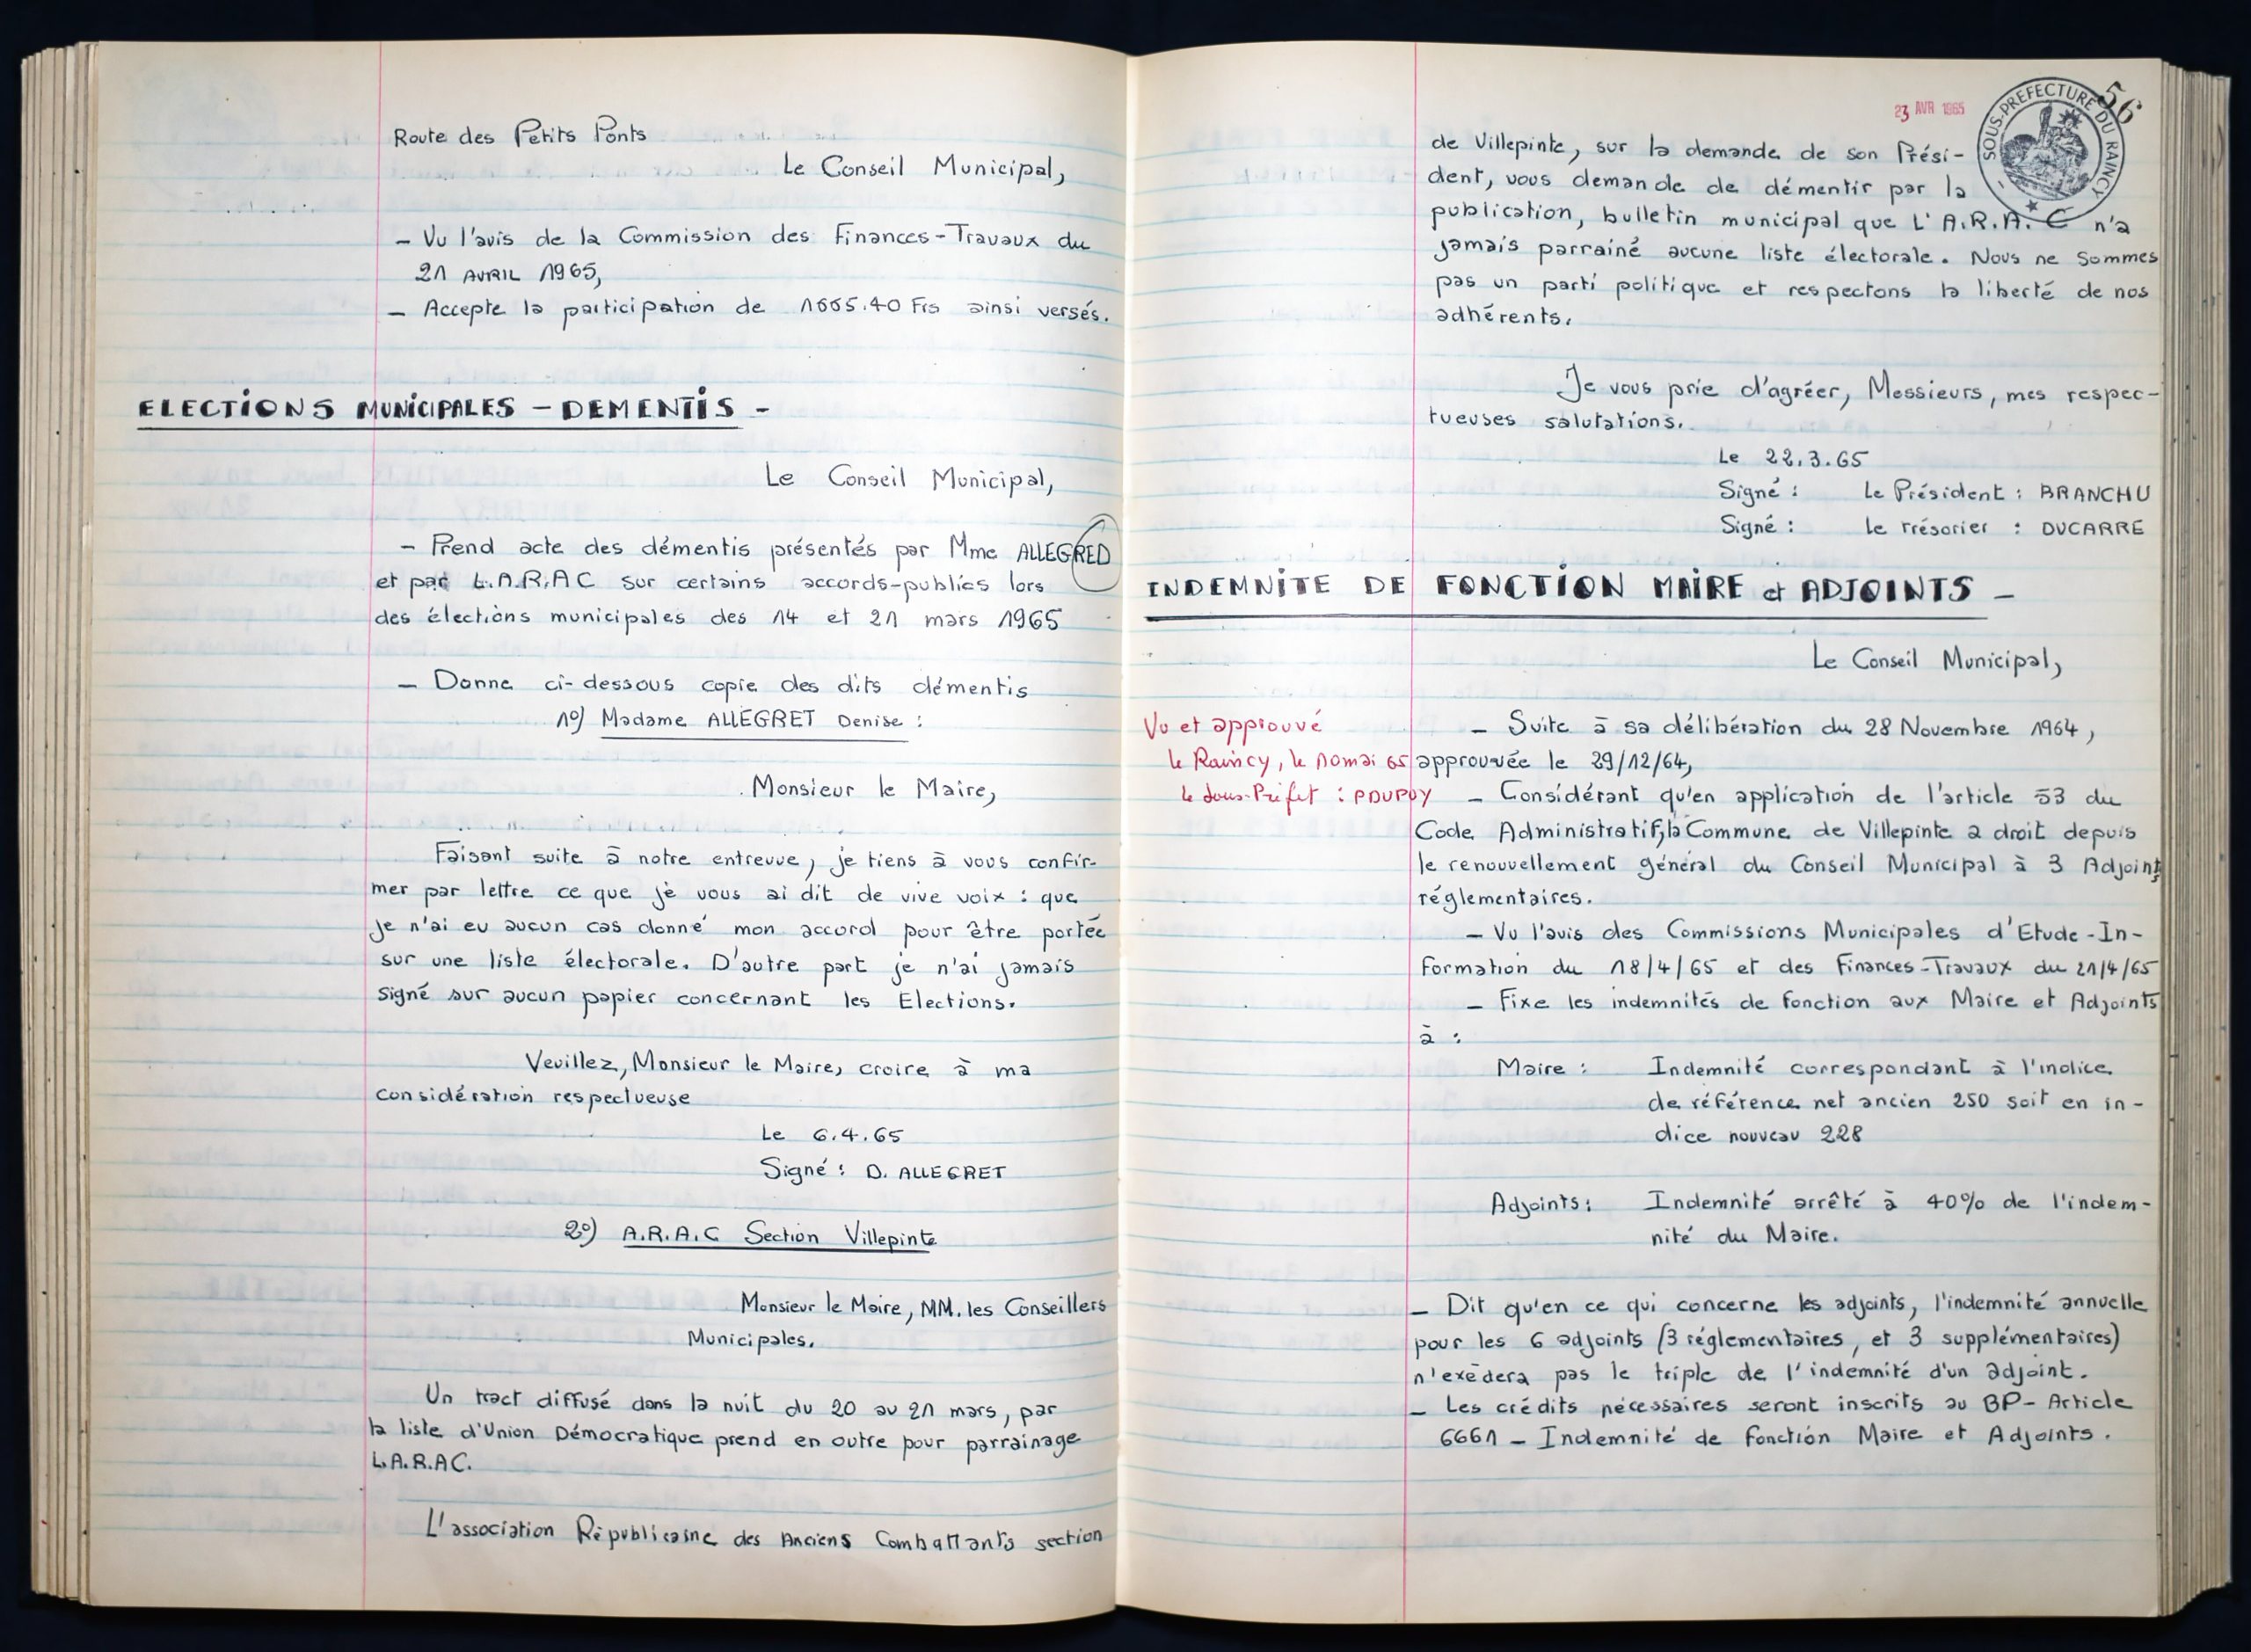 Route des Petits Ponts
Le Conseil Municipal,
- Vu l'avis de la Commission des Finances-Travaux du
21 AVRIL 1965,
- Accepte la participation de 1665.40 Frs ainsi versés.
ELECTIONS MUNICIPALES - DEMENTIS -
Le Conseil Municipal,
- Prend acte des démentis présentés par Mme ALLEGRED
et par L.A.R.AC sur certains accords-publics lors
des élections municipales des 14 et 21 mars 1965
- Donne ci-dessous copie des dits démentis
1º) Madame ALLEGRET Denise :
Monsieur le Maire,
Faisant suite à notre entrevue, je tiens à vous confir-
mer par lettre ce que je vous ai dit de vive voix : que
je n'ai eu aucun cas donné mon accord pour être portée
sur une liste électorale. D'autre part je n'ai jamais
signé sur aucun papier concernant les Elections.
Veuillez, Monsieur le Maire, croire à ma
considération respectueuse
Le 6.4.65
Signé : D. ALLEGRET
2º) A.R.A.C Section Villepinte
Monsieur le Maire, MM. les Conseillers
Municipales.
Un tract diffusé dans la nuit du 20 au 21 mars, par
la liste d'Union Démocratique prend en outre pour parrainage
L.A.R.AC.
L'association Républicaine des Anciens Combattants section
23 AVR 1965
SOUS-PREFECTURE DU RAINCY
56
de Villepinte, sur la demande de son Prési-
dent, vous demande de démentir par la
publication, bulletin municipal que L'A.R.A.C n'a
jamais parrainé aucune liste électorale. Nous ne sommes
pas un parti politique et respectons la liberté de nos
adhérents.
Je vous prie d'agréer, Messieurs, mes respec-
tueuses salutations.
Le 22.3.65
Signé : Le Président : BRANCHU
Signé : Le Trésorier : DUCARRE
INDEMNITE DE FONCTION MAIRE et ADJOINTS -
Le Conseil Municipal,
Vu et approuvé
le Raincy, le 10 mai 65
le Sous-Préfet : PDUPUY
- Suite à sa délibération du 28 Novembre 1964,
approuvée le 29/12/64,
- Considérant qu'en application de l'article 53 du
Code Administratif, la Commune de Villepinte a droit depuis
le renouvellement général du Conseil Municipal à 3 Adjoints
réglementaires.
- Vu l'avis des Commissions Municipales d'Etude-In-
formation du 18/4/65 et des Finances-Travaux du 21/4/65
- Fixe les indemnités de fonction aux Maire et Adjoints
à :
Maire : Indemnité correspondant à l'indice
de référence net ancien 250 soit en in-
dice nouveau 228
Adjoints : Indemnité arrêté à 40% de l'indem-
nité du Maire.
- Dit qu'en ce qui concerne les adjoints, l'indemnité annuelle
pour les 6 adjoints (3 réglementaires, et 3 supplémentaires)
n'exèdera pas le triple de l'indemnité d'un adjoint.
- Les crédits nécessaires seront inscrits au BP- Article
6661 - Indemnité de fonction Maire et Adjoints.